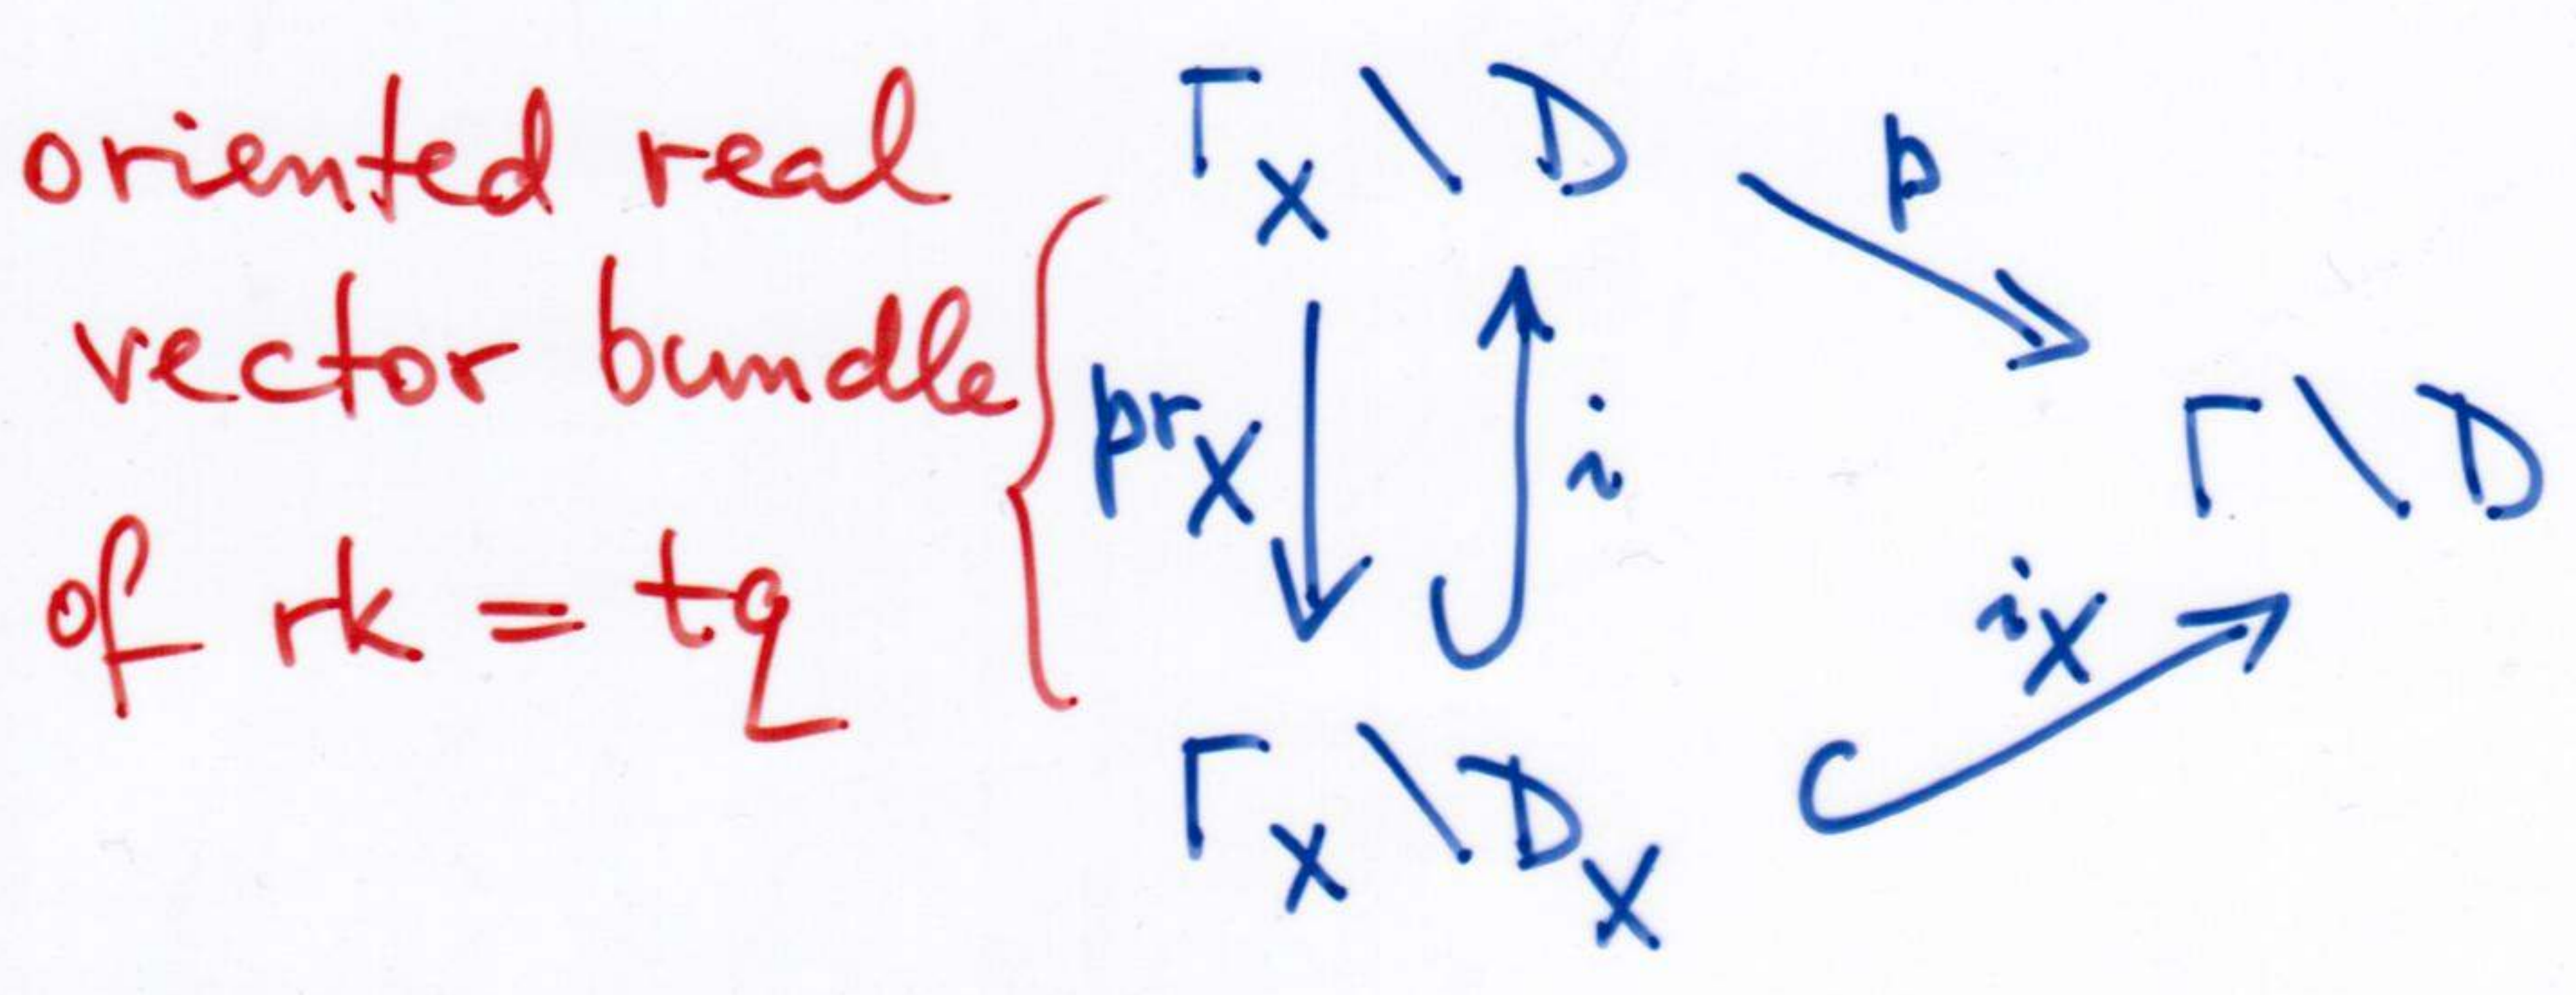 oriented real
vector bundle
of rk = tq
Γ_X \ D
p
pr_X
i
Γ \ D
i_X
Γ_X \ D_X